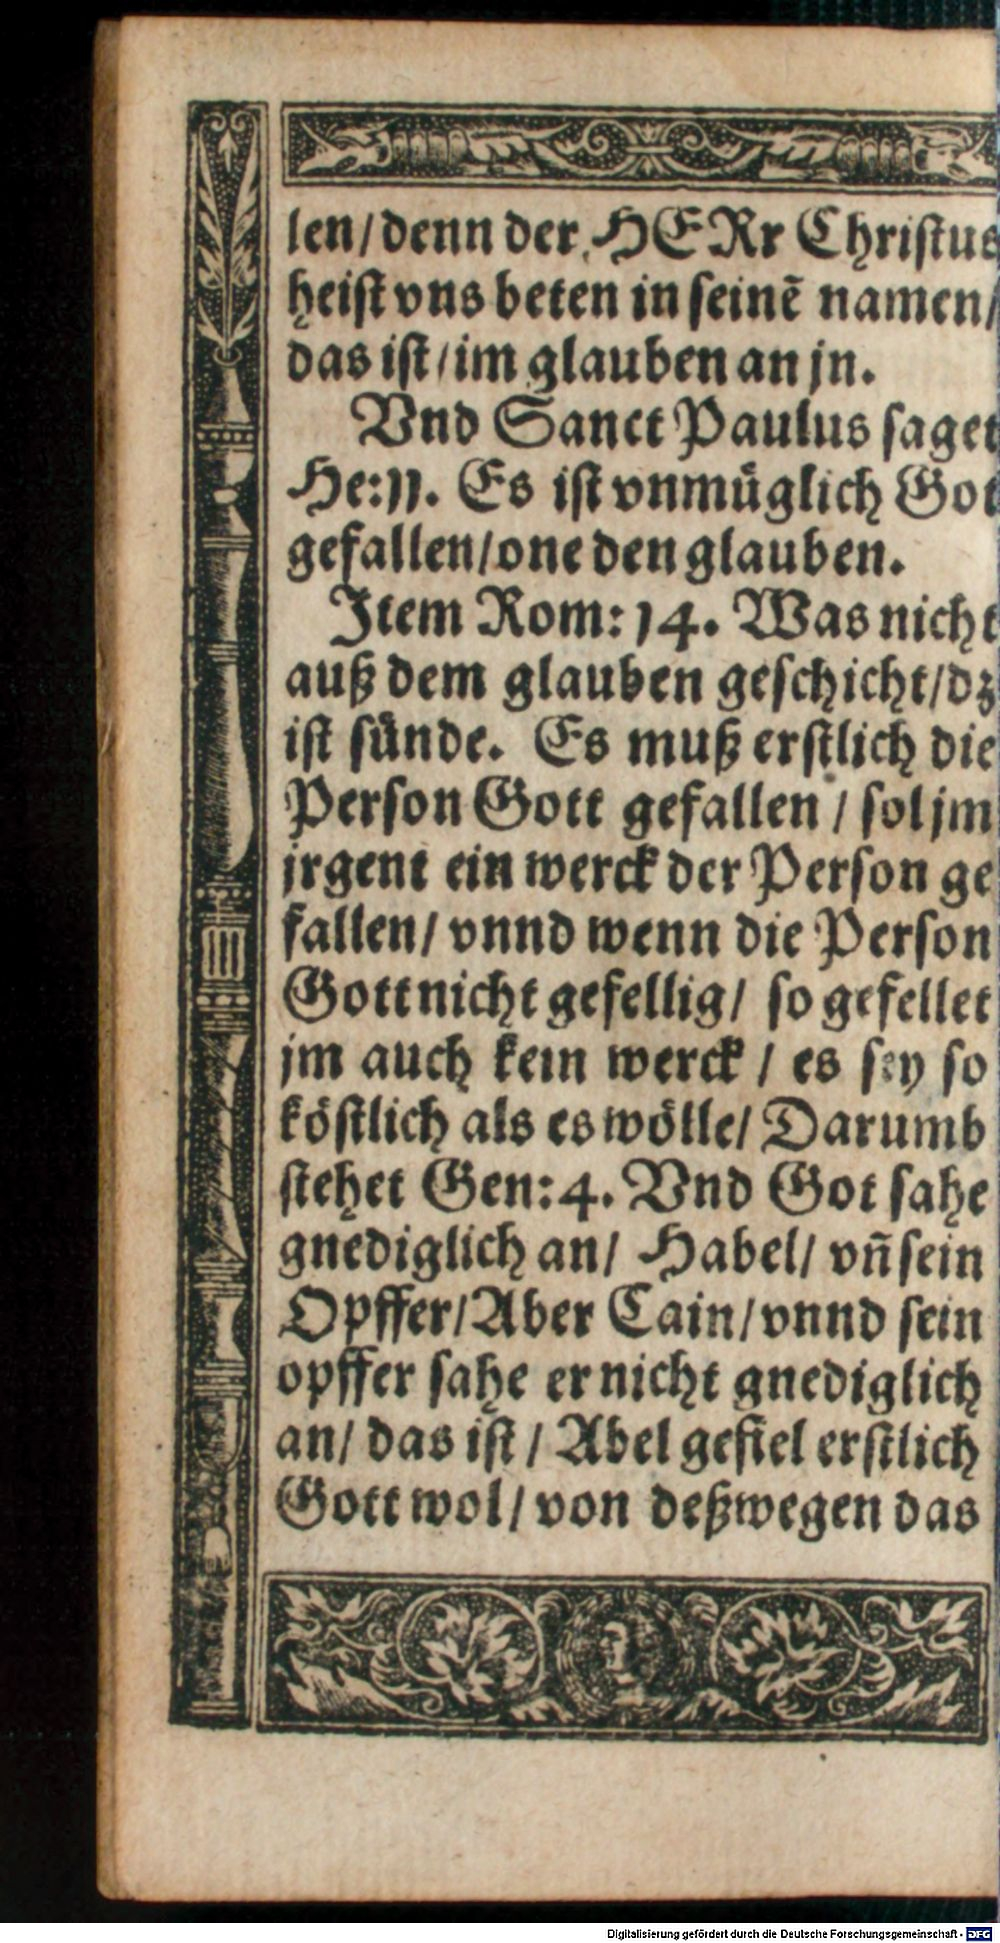 len/denn der HERr Christus
heist vns beten in seinē namen/
das ist/im glauben an jn.
Vnd Sanct Paulus saget
He:11. Es ist vnmüglich Got
gefallen/one den glauben.
Item Rom:14. Was nicht
auß dem glauben geschicht/dz
ist sünde. Es muß erstlich die
Person Gott gefallen / sol jm
jrgent ein werck der Person ge
fallen/ vnnd wenn die Person
Gott nicht gefellig/ so gefellet
jm auch kein werck / es sey so
köstlich als es wölle/ Darumb
stehet Gen:4. Vnd Got sahe
gnediglich an/ Habel/ vñ sein
Opffer/Aber Cain/vnnd sein
opffer sahe er nicht gnediglich
an/ das ist / Abel gefiel erstlich
Gott wol/ von deßwegen das
Digitalisierung gefördert durch die Deutsche Forschungsgemeinschaft - DFG